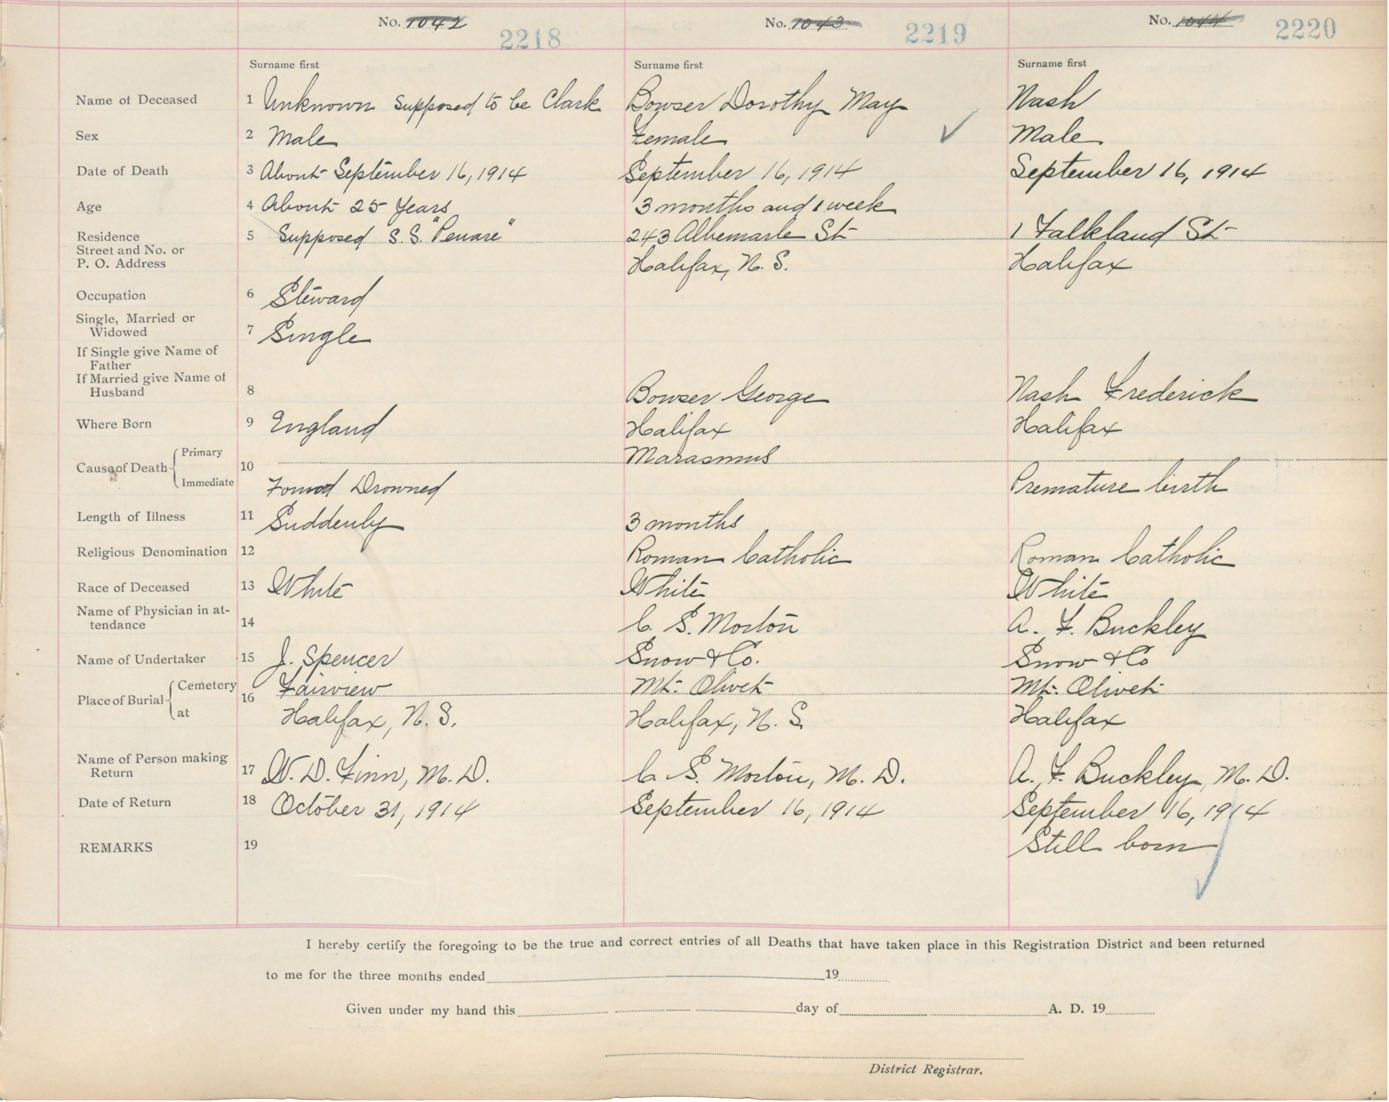 No. 1042 2218 No. 1043 2219 No. 1044 2220
Surname first Surname first Surname first
Name of Deceased 1 Unknown supposed to be Clark Bowser Dorothy May Nash
Sex 2 Male Female Male
Date of Death 3 About September 16, 1914 September 16, 1914 September 16, 1914
Age 4 About 25 Years 3 months and 1 week
Residence 5 Supposed S.S. 243 Albemarle St 1 Falkland St
Street and No. or
P. O. Address Halifax, N. S. Halifax
Occupation 6 Steward
Single, Married or
Widowed 7 Single
If Single give Name of
Father
If Married give Name of
Husband 8 Bowser George Nash Frederick
Where Born 9 England Halifax Halifax
Cause of Death Primary 10 Marasmus
Immediate Found Drowned Premature birth
Length of Illness 11 Suddenly 3 months
Religious Denomination 12 Roman Catholic Roman Catholic
Race of Deceased 13 White White White
Name of Physician in at-
tendance 14 C. S. Morton A. F. Buckley
Name of Undertaker 15 J. Spencer Snow & Co. Snow & Co
Place of Burial Cemetery 16 Fairview Mt. Olivet Mt. Olivet
at Halifax, N. S. Halifax, N. S. Halifax
Name of Person making
Return 17 W. D. Finn, M. D. C. S. Morton, M. D. A. F. Buckley, M. D.
Date of Return 18 October 31, 1914 September 16, 1914 September 16, 1914
REMARKS 19 Still born
I hereby certify the foregoing to be the true and correct entries of all Deaths that have taken place in this Registration District and been returned
to me for the three months ended 19
Given under my hand this day of A. D. 19
District Registrar.